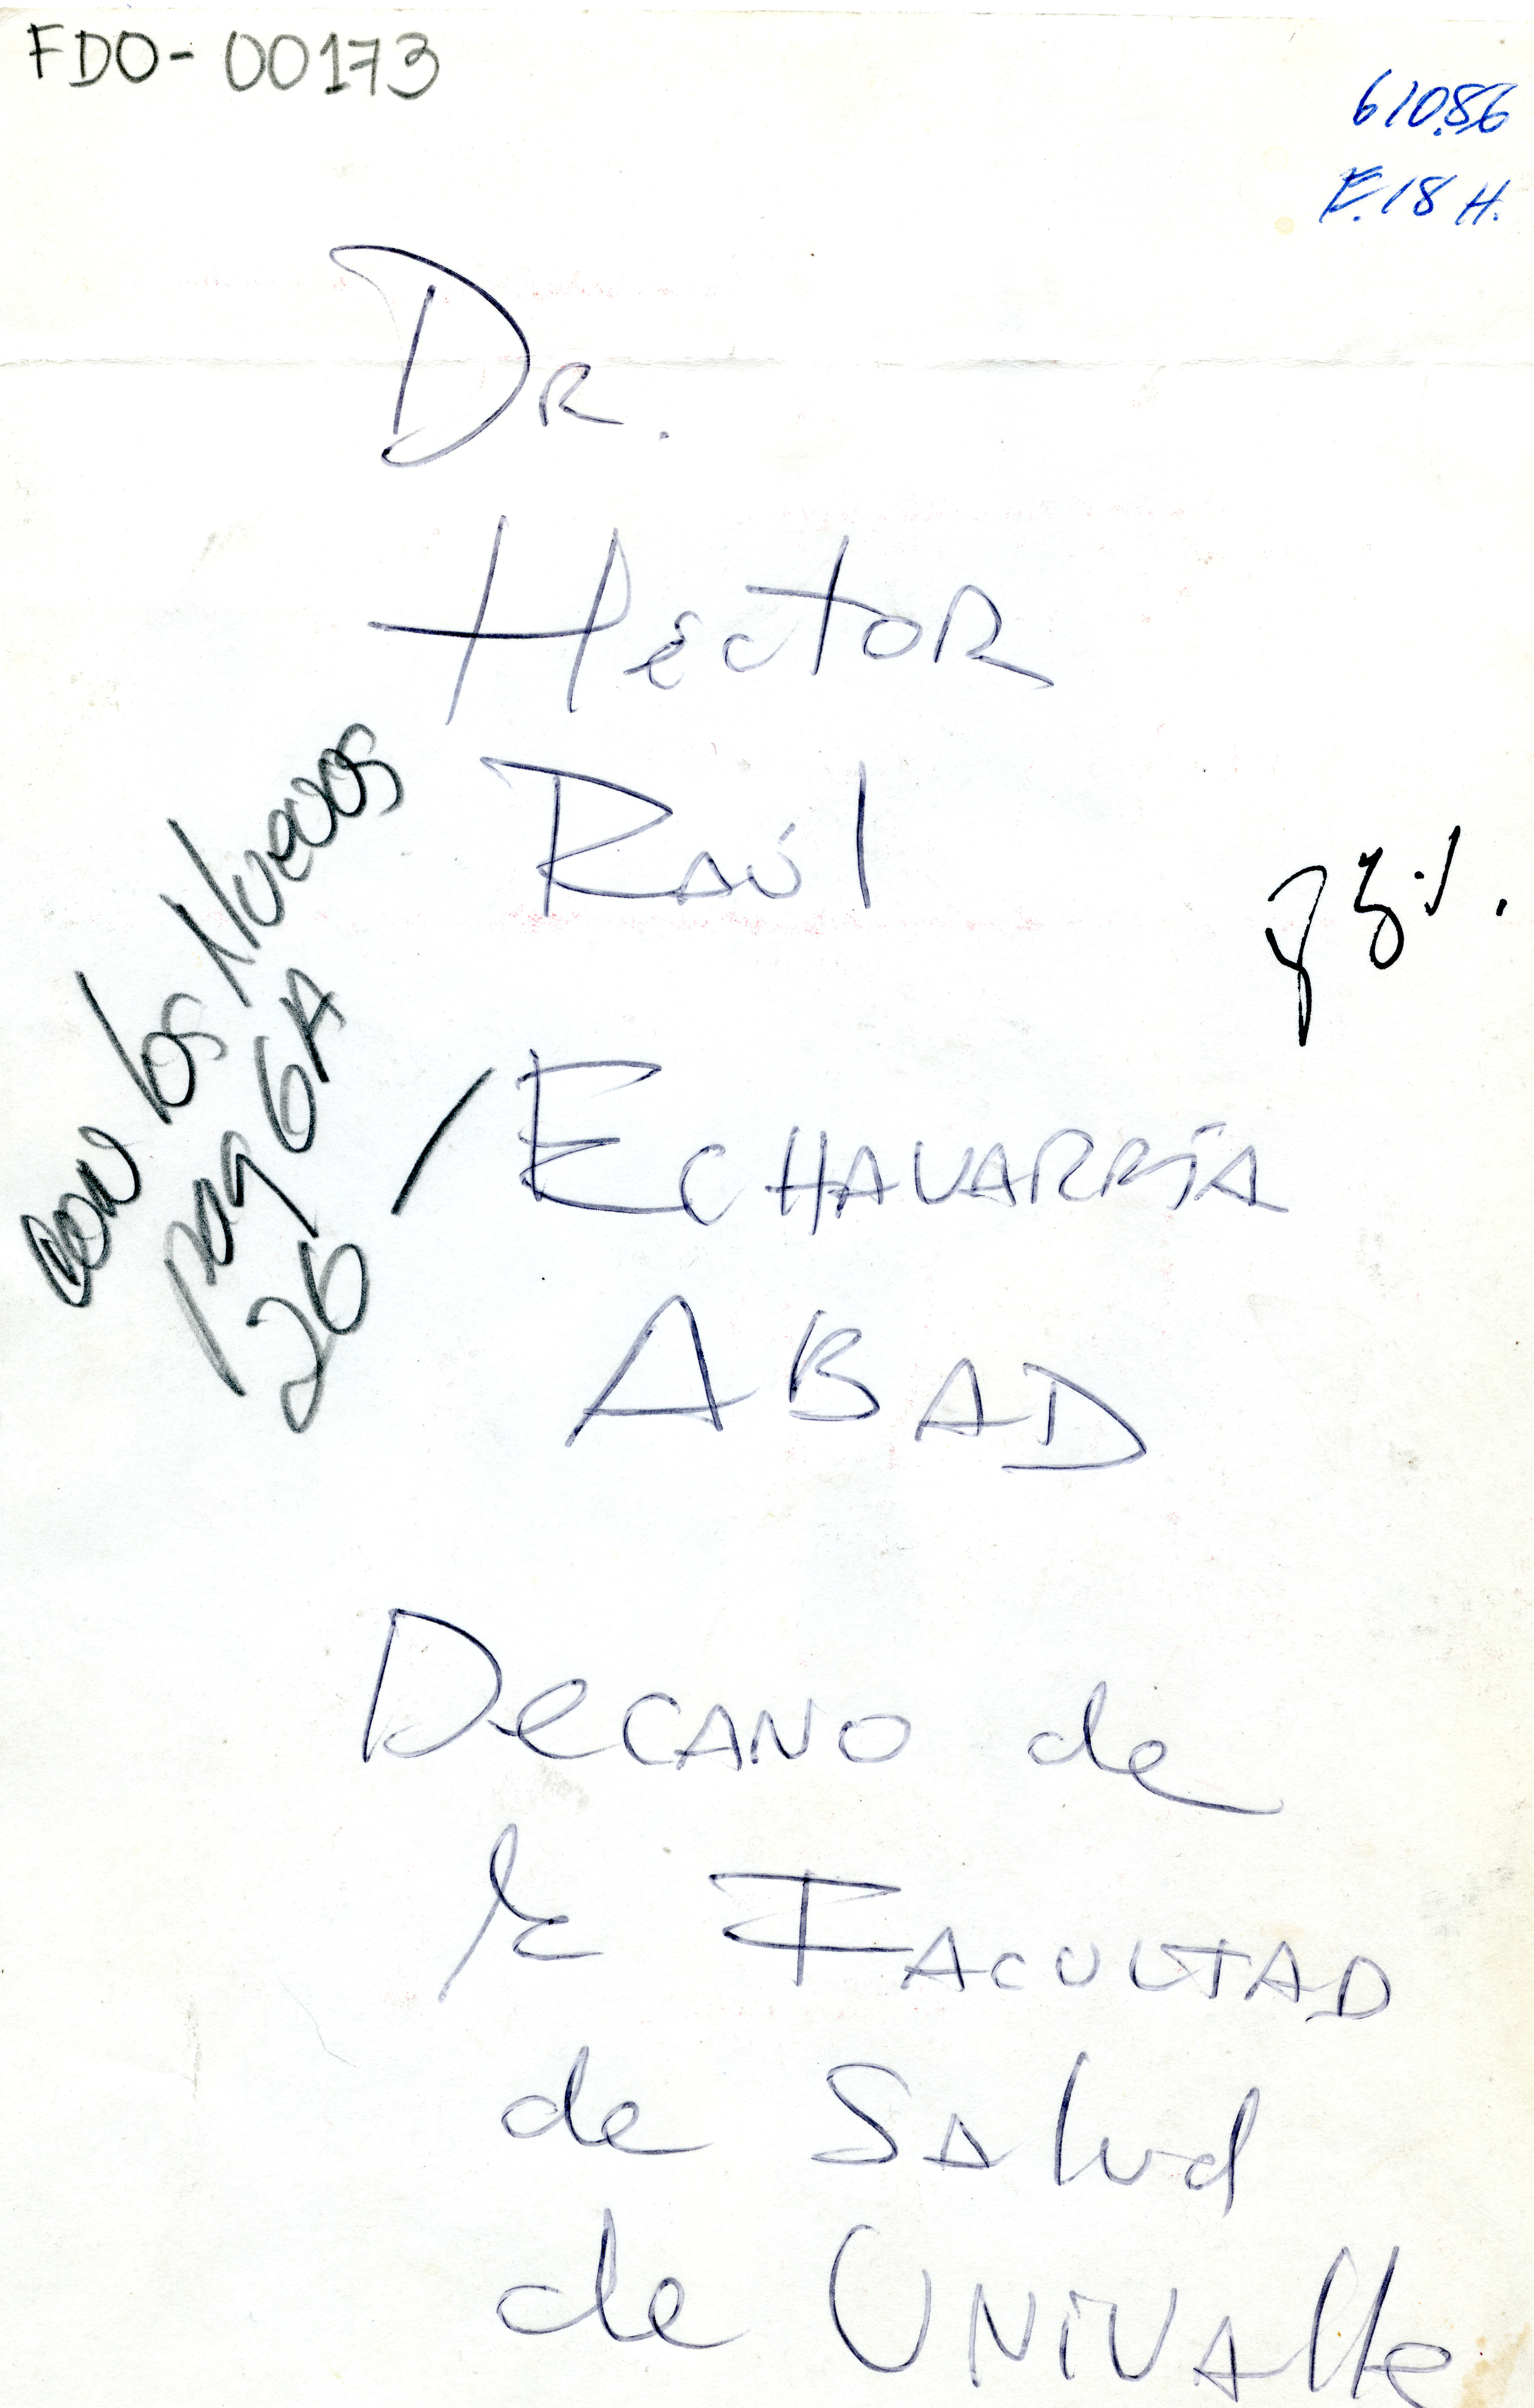 FDO-00173
610.86
E.18 H.
Dr.
Hector
Raúl
Echavarría
Abad
Decano de
la Facultad
de Salud
de Univalle
con los Nuevos
pag 6A
26